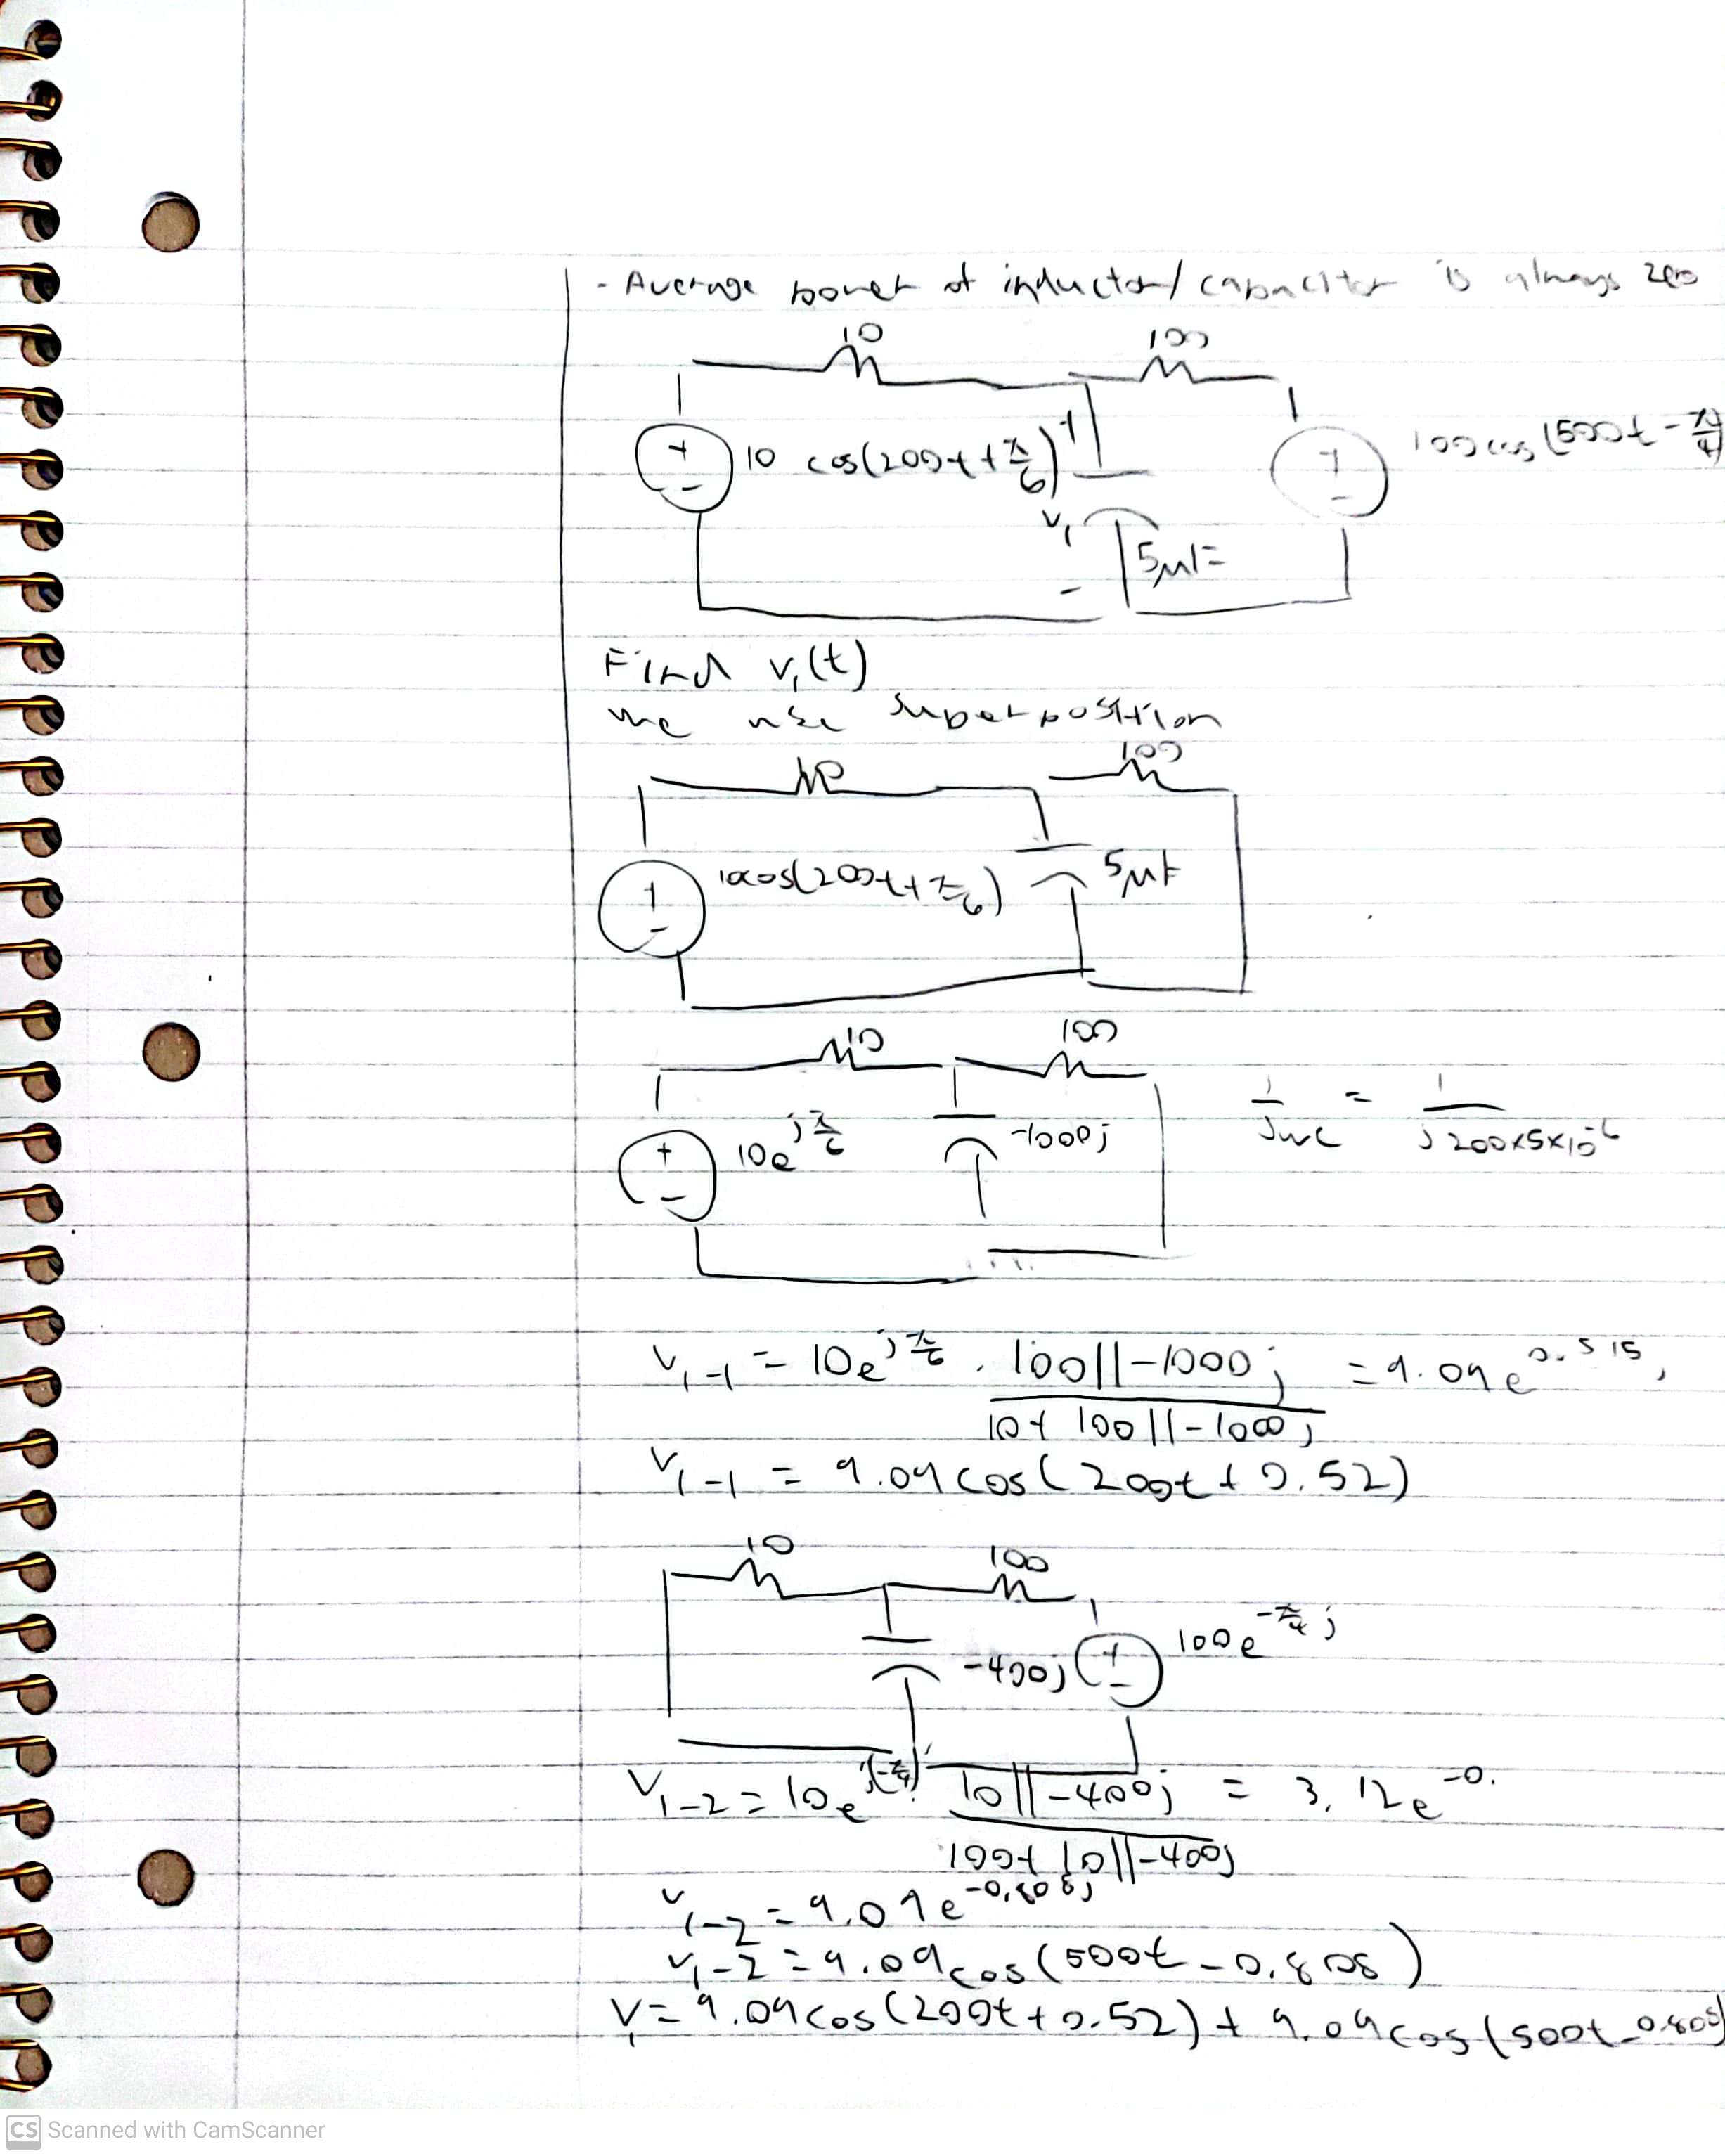 - Average power of inductor/capacitor is always zero
10
100
+
-
10 cos(200t + π/6)
+
V₁
-
5μF
+
-
100cos(500t - π/4)
Find v₁(t)
we use superposition
10
100
+
-
10cos(200t + π/6)
5μF
10
100
+
-
10e^{jπ/6}
-1000j
1/jωC = 1/j200×5×10^-6
V₁₋₁ = 10e^{jπ/6} · 100||-1000j / 10+100||-1000j = 9.09e^{0.515j}
V₁₋₁ = 9.09cos(200t + 0.52)
10
100
-400j
+
-
100e^{-π/4 j}
V₁₋₂ = 10e^{j(-π/4)} · 10||-400j / 100+10||-400j = 3.12e^{-0.}
V₁₋₂ = 9.09e^{-0.808j}
V₁₋₂ = 9.09cos(500t - 0.808)
V₁ = 9.09cos(200t + 0.52) + 9.09cos(500t - 0.808)
CS Scanned with CamScanner